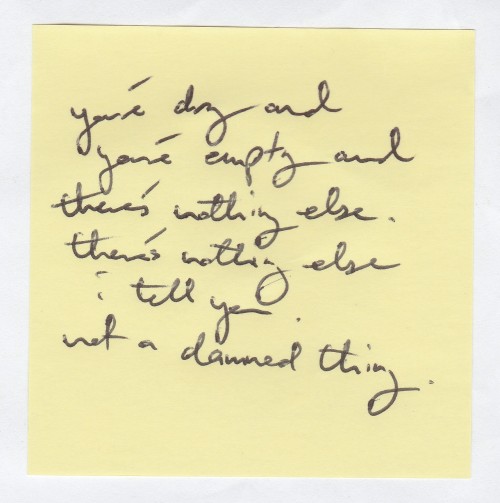 you're dry and
you're empty and
there's nothing else.
there's nothing else
i tell you.
not a damned thing.